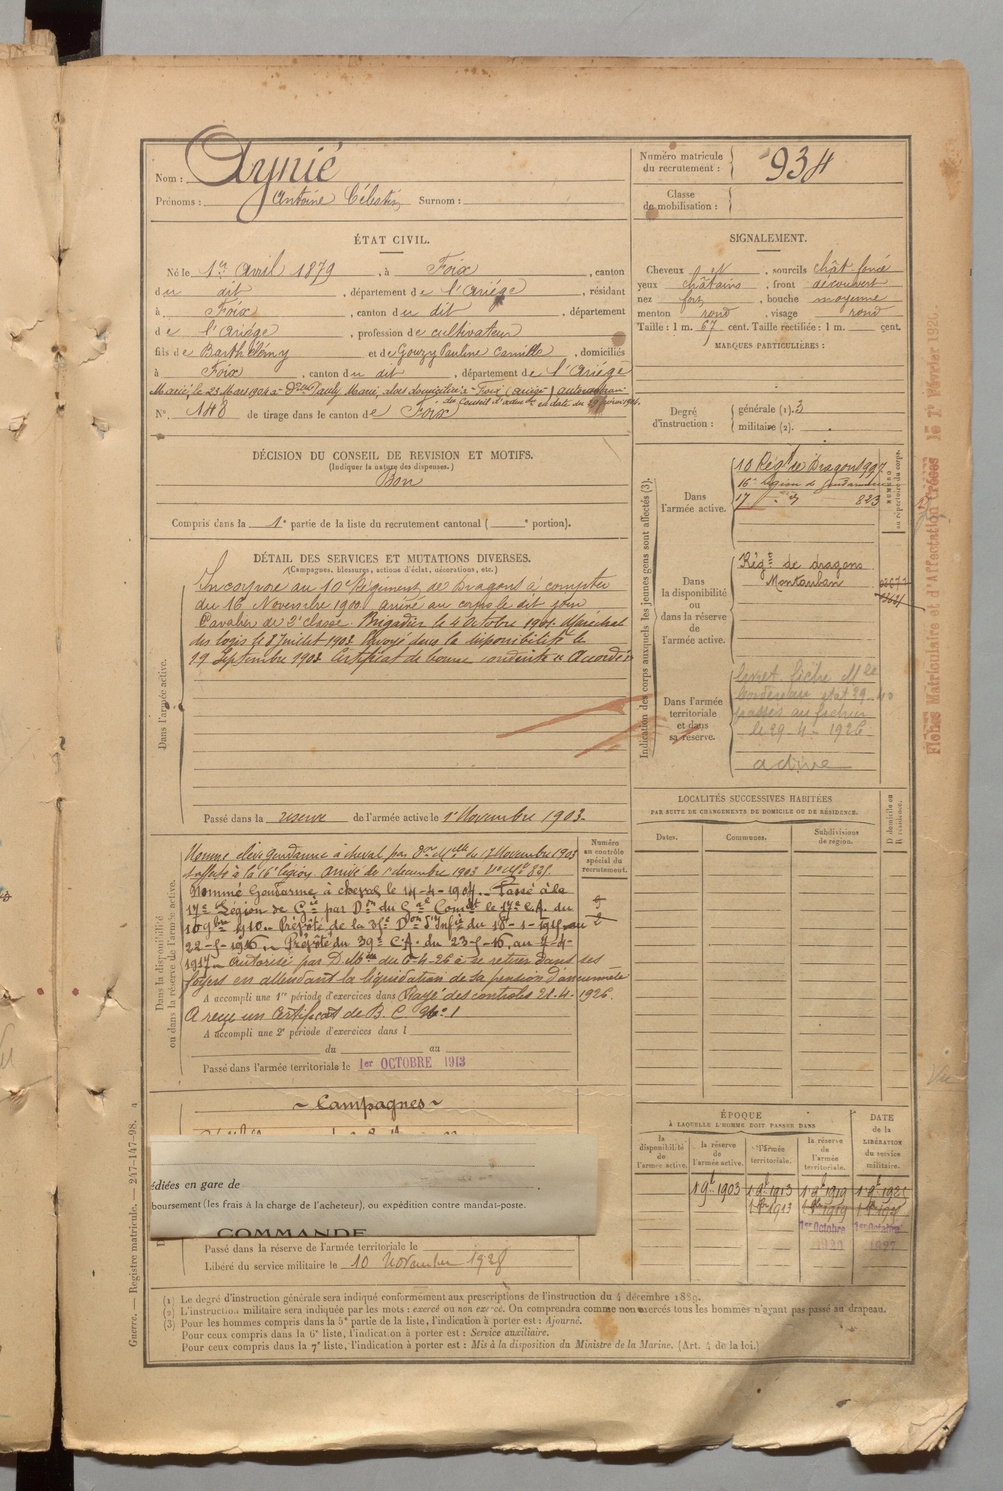 Nom : Aynié
Prénoms : Antoine Célestin Surnom :
ÉTAT CIVIL.
Né le 1er Avril 1879, à Foix, canton
du dit, département de l'Ariége, résidant
à Foix, canton du dit, département
de l'Ariége, profession de cultivateur
fils de Barthélémy et de Gouzy Pauline Camille, domiciliés
à Foix, canton du dit, département de l'Ariége
Marié le 23 Mars 1904 à Dlle Pauly Marie, alors domiciliée à Foix (Ariège) autorisation
du Conseil d'adm on en date du
N° 148 de tirage dans le canton de Foix
DÉCISION DU CONSEIL DE REVISION ET MOTIFS.
(Indiquer la nature des dispenses.)
Bon
Compris dans la 1e partie de la liste du recrutement cantonal ( e portion).
DÉTAIL DES SERVICES ET MUTATIONS DIVERSES.
(Campagnes, blessures, actions d'éclat, décorations, etc.)
Dans l'armée active.
Incorporé au 10e Régiment de Dragons à compter
du 16 Novembre 1900 arrivé au corps le dit jour
Cavalier de 2e classe. Brigadier le 4 Octobre 1901. Maréchal
des logis le 8 Juillet 1902. Envoyé dans la disponibilité le
19 Septembre 1903 Certificat de bonne conduite "Accordé"
Passé dans la réserve de l'armée active le 1er Novembre 1903.
Dans la disponibilité
ou dans la réserve de l'armée active.
Numéro
au contrôle
spécial du
recrutement.
Nommé élève gendarme à cheval par Don Mlle du 17 Novembre 1903
affecté à la 16e légion. Arrivé le 1er décembre 1903
Nommé Gendarme à cheval le 14-4-1904. Passé à la
17e Légion de Gie par Don du Gal Comdt le 17e C.A. du
10 9bre 1910. Prévôté de la 35e Don d'Infie du 18-1-1915 au
22-5-1916. Prévôté du 39e C.A. du 23-5-16, au 7-4-
1917. Autorisé par D. Mlle du 6-4-26 à se retirer dans ses
foyers en attendant la liquidation de sa pension d'ancienneté
A accompli une 1re période d'exercices dans Rayé des controles 21-4-1926.
A reçu un certificat de B. C. N° 1
A accompli une 2e période d'exercices dans l
du au
Passé dans l'armée territoriale le 1er OCTOBRE 1913
~ Campagnes ~
édiées en gare de
boursement (les frais à la charge de l'acheteur), ou expédition contre mandat-poste.
COMMANDE
Passé dans la réserve de l'armée territoriale le
Libéré du service militaire le 10 Novembre 1928
Numéro matricule
du recrutement : 934
Classe
de mobilisation :
SIGNALEMENT.
Cheveux, sourcils chât. foncé
yeux châtains, front découvert
nez fort, bouche moyenne
menton rond, visage rond
Taille : 1 m. 67 cent. Taille rectifiée : 1 m. cent.
MARQUES PARTICULIÈRES :
Degré
d'instruction :
générale (1). 3
militaire (2).
Indication des corps auxquels les jeunes gens sont affectés (3).
NUMÉRO
au répertoire du corps.
Dans
l'armée active.
10 Régt de Dragons 997
16e Légion de gendarmerie
17 " d° 823
Dans
la disponibilité
ou
dans la réserve
de
l'armée active.
Régt de dragons
Montauban
Dans l'armée
territoriale
et dans
sa réserve.
livret, fiche Mle
passés au fichier
le 29-4-1926
active
LOCALITÉS SUCCESSIVES HABITÉES
PAR SUITE DE CHANGEMENTS DE DOMICILE OU DE RÉSIDENCE.
Dates.
Communes.
Subdivisions
de région.
D domicile ou
R résidence.
ÉPOQUE
À LAQUELLE L'HOMME DOIT PASSER DANS
la
disponibilité
de
l'armée active.
la réserve
de
l'armée active.
l'armée
territoriale.
la réserve
de
l'armée
territoriale.
DATE
de la
LIBÉRATION
du service
militaire.
1 9bre 1903 1 8bre 1913
1er Octobre 1er Octobre
Fiches Matriculaire et d'Affectation créées le 1er Février 1926.
Vu
Guerre. — Registre matricule. — 247-147-98.
(1) Le degré d'instruction générale sera indiqué conformément aux prescriptions de l'instruction du 4 décembre 1889.
(2) L'instruction militaire sera indiquée par les mots : exercé ou non exercé. On comprendra comme non exercés tous les hommes n'ayant pas passé au drapeau.
(3) Pour les hommes compris dans la 5e partie de la liste, l'indication à porter est : Ajourné.
Pour ceux compris dans la 6e liste, l'indication à porter est : Service auxiliaire.
Pour ceux compris dans la 7e liste, l'indication à porter est : Mis à la disposition du Ministre de la Marine. (Art. 4 de la loi.)